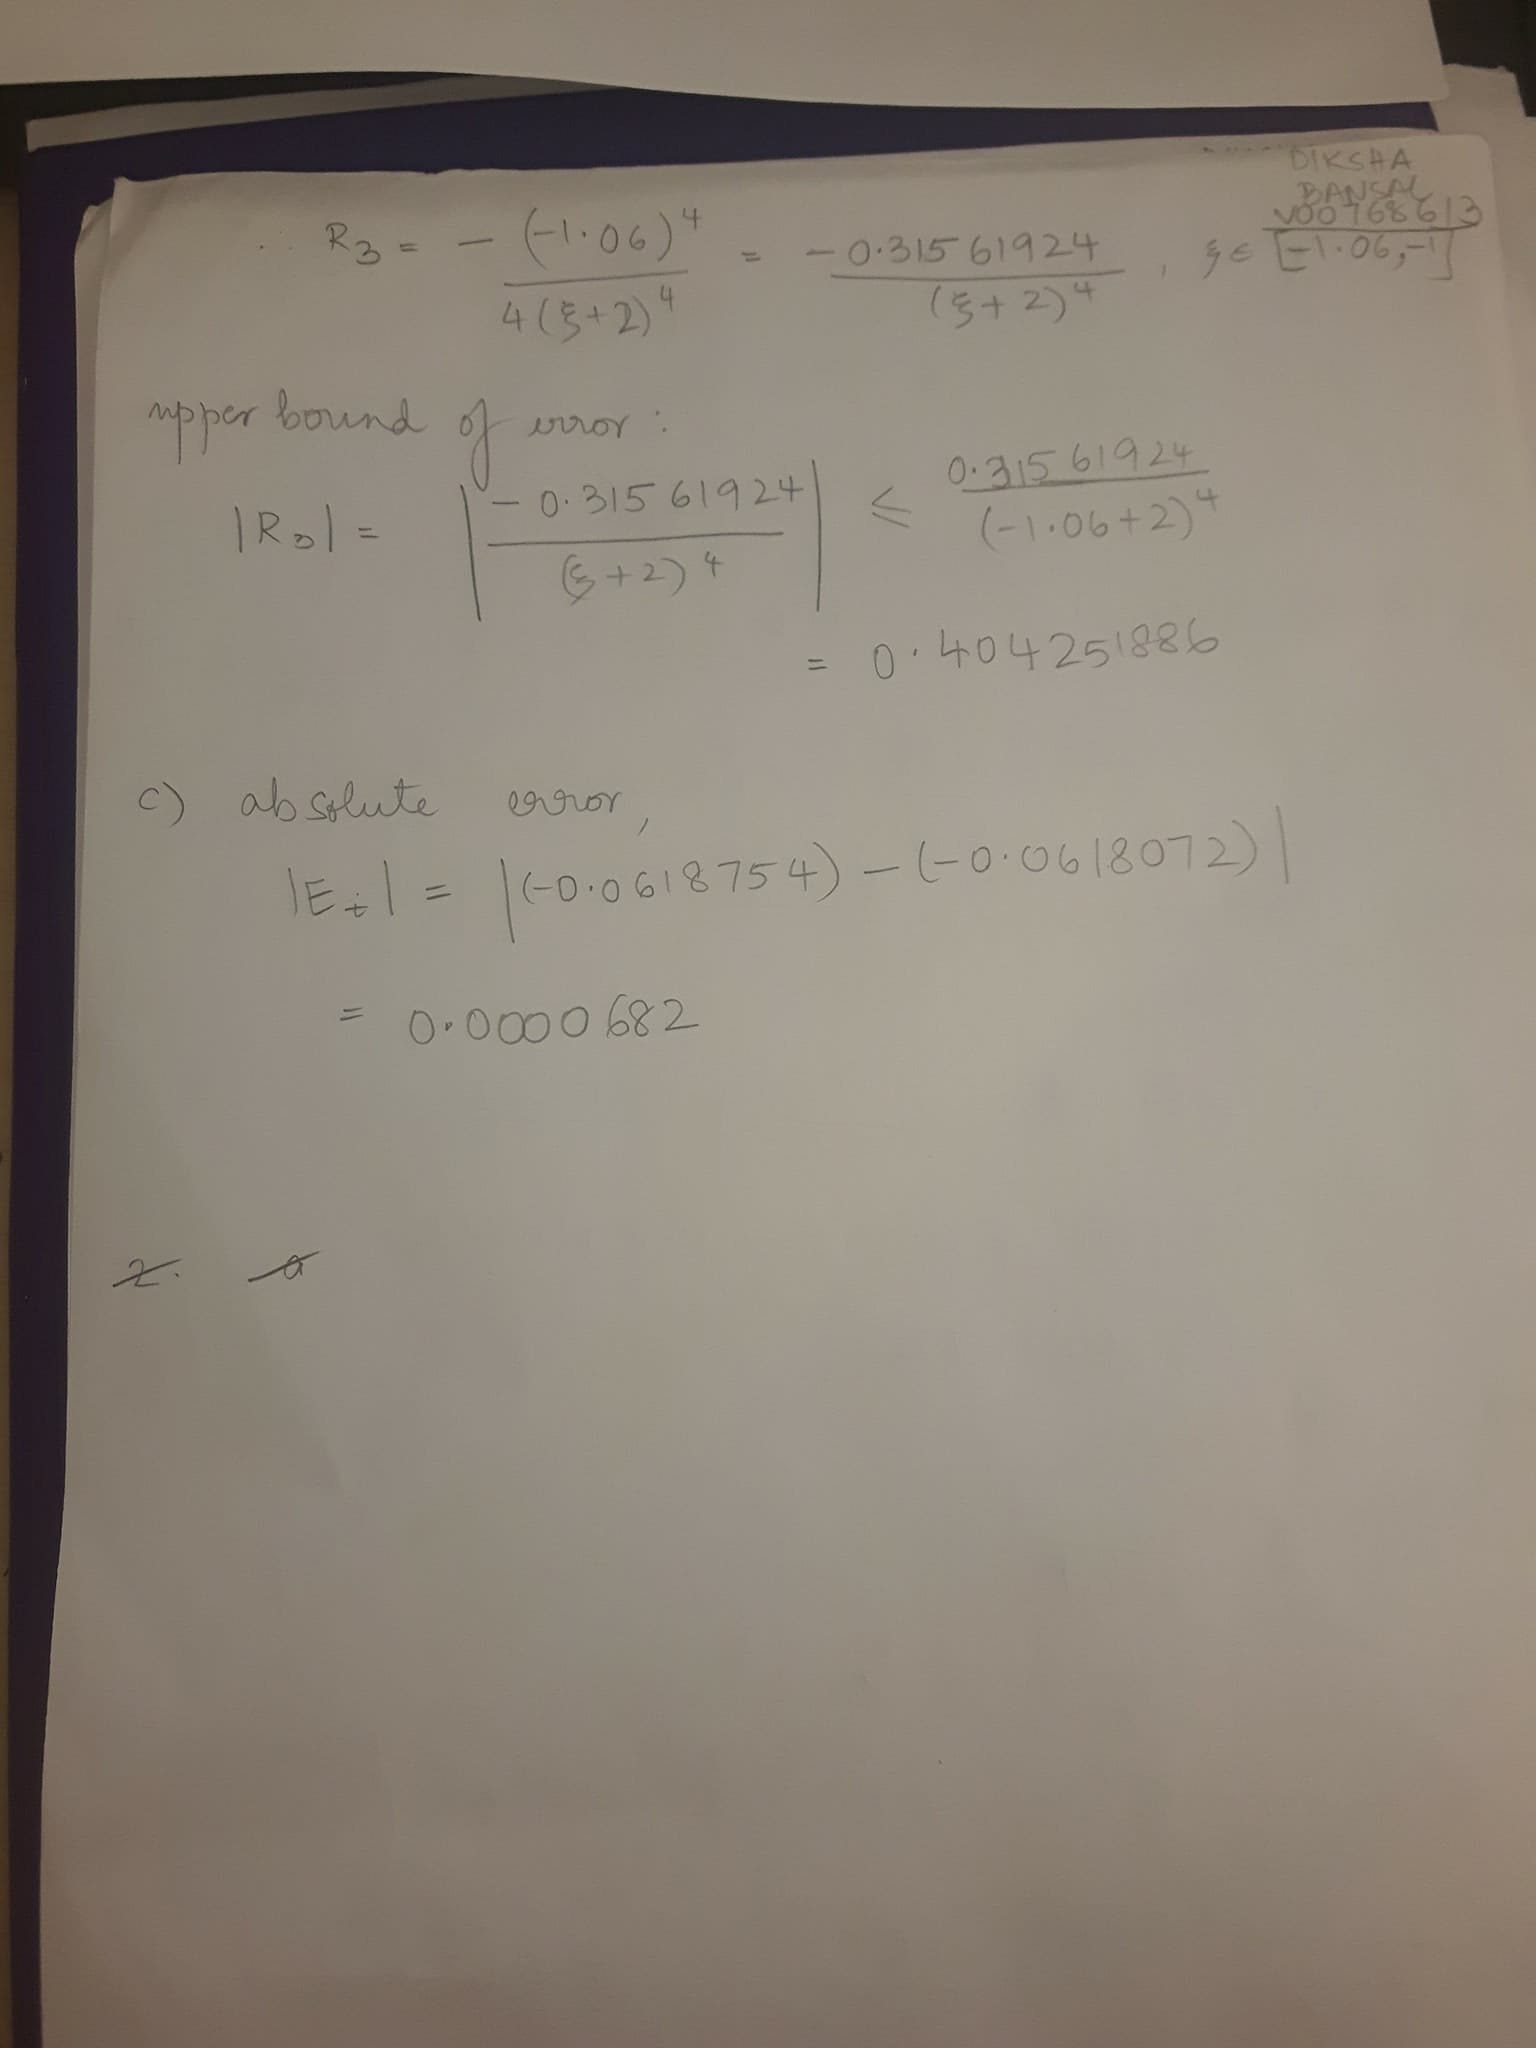 DIKSHA
BANSAL
V00768613
∴ R₃ = - (-1.06)⁴ / 4(ξ+2)⁴ = -0.31561924 / (ξ+2)⁴ , ξ ∈ [-1.06,-1]
upper bound of error :
|R₃| = | -0.31561924 / (ξ+2)⁴ | ⩽ 0.31561924 / (-1.06+2)⁴
= 0.404251886
c) absolute error,
|Eₜ| = |(-0.0618754) - (-0.0618072)|
= 0.0000682
2. a